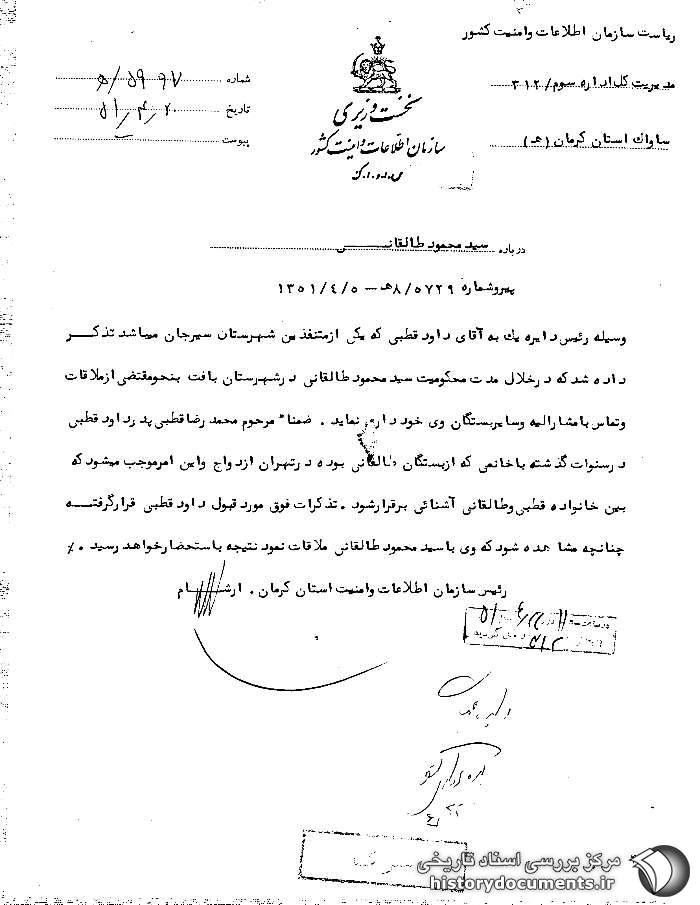 ریاست سازمان اطلاعات وامنیت کشور
مدیریت کل اداره سوم/۳۱۲
ساواک استان کرمان (هـ)
نخست وزیری
سازمان اطلاعات و امنیت کشور
س.ا.و.ا.ک
شماره ۵۹۹۷/هـ
تاریخ ۵۱/۴/۲۰
پیوست
درباره سید محمود طالقانی
پیرو شماره ۸/۵۷۲۹هـ - ۱۳۵۱/۴/۵
وسیله رئیس دایره یک به آقای داود قطبی که یکی ازمتنفذین شهرستان سیرجان میباشد تذکر
داده شد که درخلال مدت محکومیت سید محمود طالقانی درشهرستان بافت بنحومقتضی ازملاقات
وتماس بامشارالیه وسایربستگان وی خود داری نماید . ضمنا" مرحوم محمد رضا قطبی پدرداود قطبی
درسنوات گذشته باخانمی که ازبستگان طالقانی بوده درتهران ازدواج واین امرموجب میشود که
بین خانواده قطبی وطالقانی آشنائی برقرارشود . تذکرات فوق مورد قبول داود قطبی قرارگرفته
چنانچه مشاهده شود که وی باسید محمود طالقانی ملاقات نمود نتیجه باستحضارخواهد رسید . ٪
رئیس سازمان اطلاعات وامنیت استان کرمان . ارشام
مرکز بررسی اسناد تاریخی
historydocuments.ir